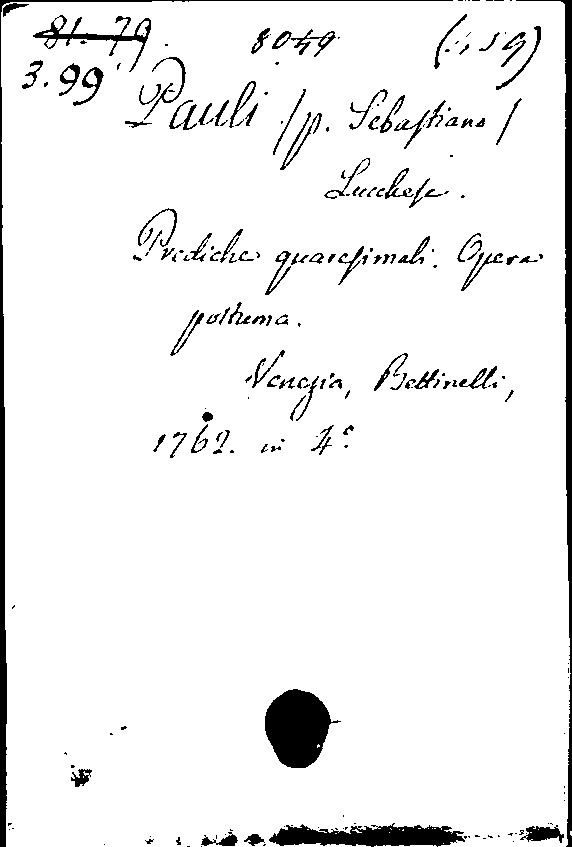 81. 79. 8049
3.99
Pauli /p. Sebastiano/
Lucchese.
Prediche quaresimali. Opera
postuma.
Venezia, Bettinelli,
1762. in 4°